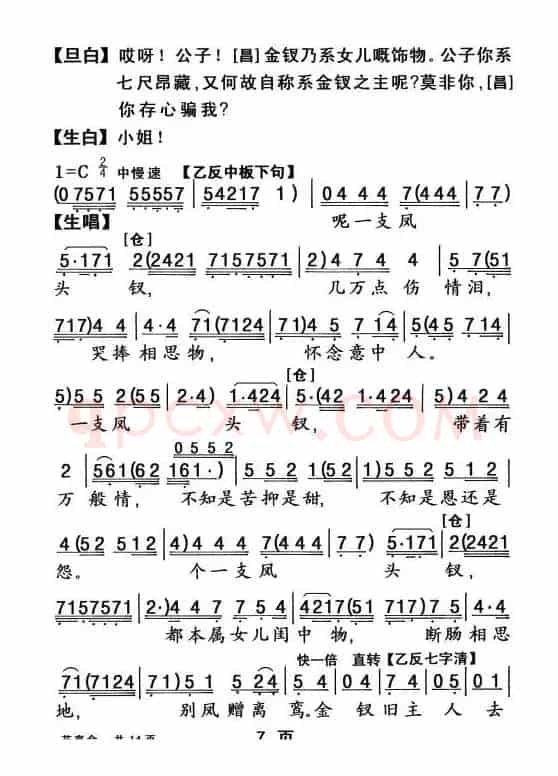 【旦白】哎呀！公子！[昌]金钗乃系女儿嘅饰物。公子你系
七尺昂藏,又何故自称系金钗之主呢?莫非你,[昌]
你存心骗我?
【生白】小姐！
1=C 2/4 中慢速 【乙反中板下句】
(07571 55557 | 54217 1) | 0444 7(444 | 77)
【生唱】 呢一支凤
[仓]
5·171 2(2421 7157571 | 2)474 4 | 57(51
头 钗, 几万点伤 情泪,
717)4 4 | 4·4 71(7124 | 71)457 14 | 5(45 714
哭捧相思物, 怀念意中 人。
[仓]
5)55 2(55 | 2·4) 1·424 | 5·(42 1·424 | 5)424
一支凤 头 钗, 带着有
0552
2 | 561(62 161·) | 552 1(52 | 1)552 | 551
万 般情, 不知是苦抑是甜, 不知是恩还是
[仓]
4(52 512 | 4)44 7(44 | 7·) 5·171 | 2(2421
怨。 个一支凤 头 钗,
7157571 | 2·)44 7 754 | 4217(51 717)75 | 4·4
都本属女儿闺中 物, 断肠相思
快一倍 直转【乙反七字清】
71(7124 | 71)51 5 24 | 5 4 | 02 4 | 2 1
地, 别凤赠离 鸾。金 钗旧主 人去
7 页